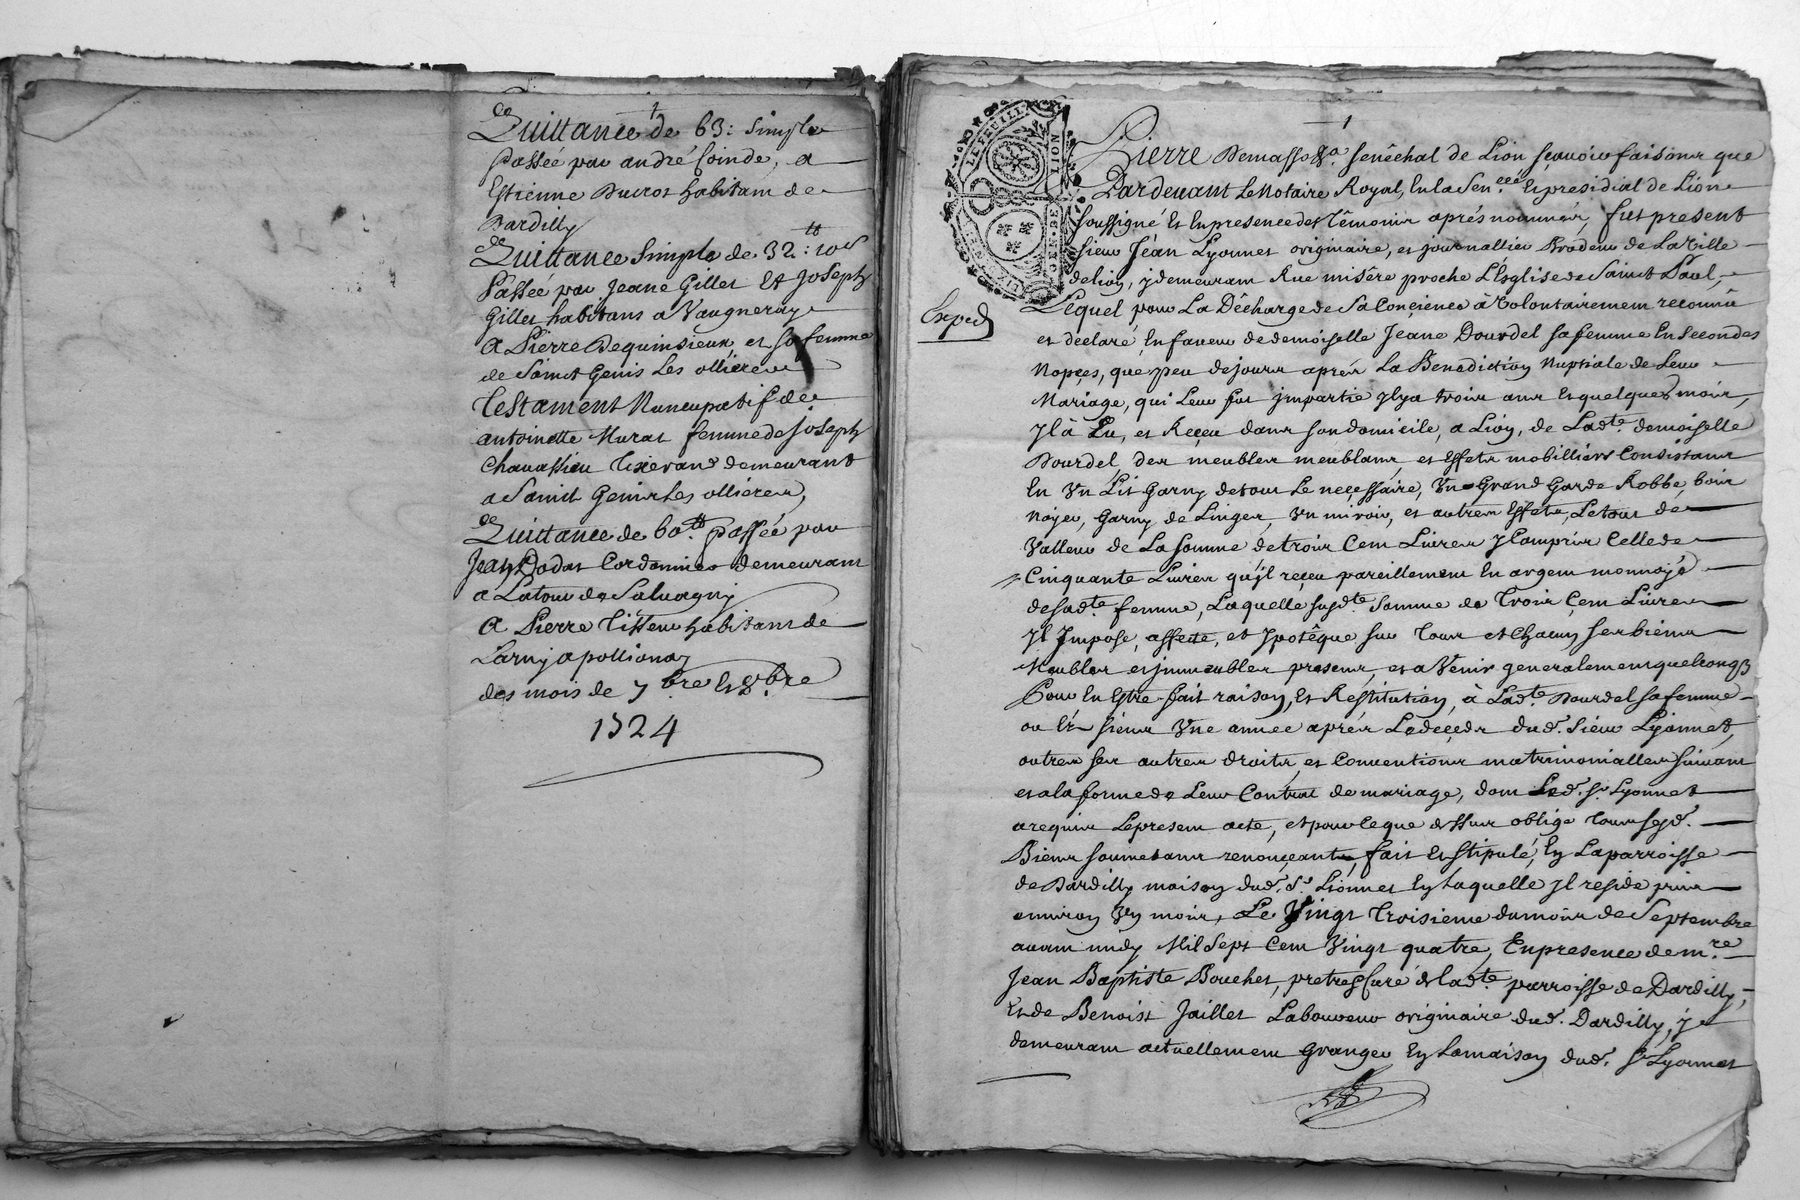 Quittance de 63: simple
Passée par andré Coinde, a
Estienne Ducrot habitant de
Dardilly
Quittance simple de 32tt: 10s
Passée par Jeane Gillet Et Joseph
Gillet habitans a Vaugneray
A Pierre Dequinsieux et sa femme
de Sainct Genis Les ollieres
Testament Nuncupatif de
antoinette Murat femme de Joseph
Chauassieu Tixerand demeurant
a Sainct Genis Les ollieres,
Quittance de 60tt passée par
Jean Dodat Cordonnier demeurant
a Latour de Saluagny
A Pierre Tisseur habitant de
Larny apollionay
des mois de 7bre Et 8bre
1724
LION
Exped
Pierre Demasso &a. senêchal de Lion sçavoir faisons que
Pardevant Le Notaire Royal, En la Senceé Et presidial de Lion
soussigné Et En presence des têmoins aprés nommés, fut present
sieur Jéan Lyonnet originaire, et journallier Brodeur de La Ville
de lion, y demeurant Rue misêre proche L'Esglise de Sainct Paul,
Lequel pour La Dêcharge de Sa Concience à Volontairement reconnu
et declaré, En faueur de demoiselle Jeane Dourdel sa femme En Secondes
Nopces, que peu de jours aprés La Benediction Nuptiale de Leur
Mariage, qui Leur fut jmpartie jl y a trois ans Et quelques mois,
Jl à Eu, et Reçeu dans son domicile, a Lion, de Ladte. demoiselle
Dourdel, des meubles meublans, et Effets mobilliers Consistans
En Vn Lit Garny de tout Le neçessaire, Vn Grand Garde Robbe, bois
Noyer, Garny de Linges, Vn miroir, et autres Effets, Le tout de
Valleur de La somme de trois Cent Liures y Compris Celle de
Cinquante Liures qu'jl reçeu pareillement En argent monnoyé
de sadte. femme, Laquelle susdte. Somme de Trois Cent Liures
Jl Jmpose, affecte, et Jpotêque sur Tous et Chacuns ses biens
Meubles et jmmeubles presens, et a Venir generalement quelconqs
Pour En Estre fait raison, Et Restitution, à Ladte. Dourdel sa femme
ou Es siens Vne année aprés Le deçeds dud. sieur Lyonnet,
outres ses autres droits, et Conuentions matrimonialles suiuant
et a la forme de Leur Contrat de mariage, dont Led. sr. Lyonnet
a requis Le present acte, et pour Ce que dessus oblige Tous sesd.
Biens soumetans renonçeant, fait Et Stipulé, En La parroisse
de Dardilly maison dud. Sr. Lionnet En Laquelle jl reside puis
enuiron Vn mois, Le Vingt Troisieme du mois de Septembre
auant midy Mil Sept Cent Vingt quatre, En presence de mre.
Jean Baptiste Bouchet, pretre Curé de ladte. parroisse de Dardilly,
Et de Benoist Jaillet Laboureur originaire dud. Dardilly, y
demeurant actuellement Granger En La maison dud. sr. Lyonnet